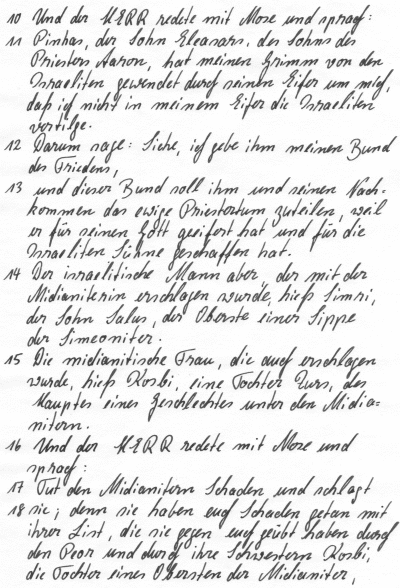 10 Und der HERR redete mit Mose und sprach:
11 Pinhas, der Sohn Eleasars, des Sohns des
Priesters Aaron, hat meinen Grimm von den
Israeliten gewendet durch seinen Eifer um mich,
daß ich nicht in meinem Eifer die Israeliten
vertilge.
12 Darum sage: Siehe, ich gebe ihm meinen Bund
des Friedens,
13 und dieser Bund soll ihm und seinen Nach-
kommen das ewige Priestertum zuteilen, weil
er für seinen Gott geeifert hat und für die
Israeliten Sühne geschaffen hat.
14 Der israelitische Mann aber, der mit der
Midianiterin erschlagen wurde, hieß Simri,
der Sohn Salus, der Oberste einer Sippe
der Simeoniter.
15 Die midianitische Frau, die auch erschlagen
wurde, hieß Kosbi, eine Tochter Zurs, des
Hauptes eines Geschlechtes unter den Midia=
nitern.
16 Und der HERR redete mit Mose und
sprach:
17 Tut den Midianitern Schaden und schlagt
18 sie; denn sie haben euch Schaden getan mit
ihrer List, die sie gegen euch geübt haben durch
den Peor und durch ihre Schwestern Kosbi,
die Tochter eines Obersten der Midianiter,